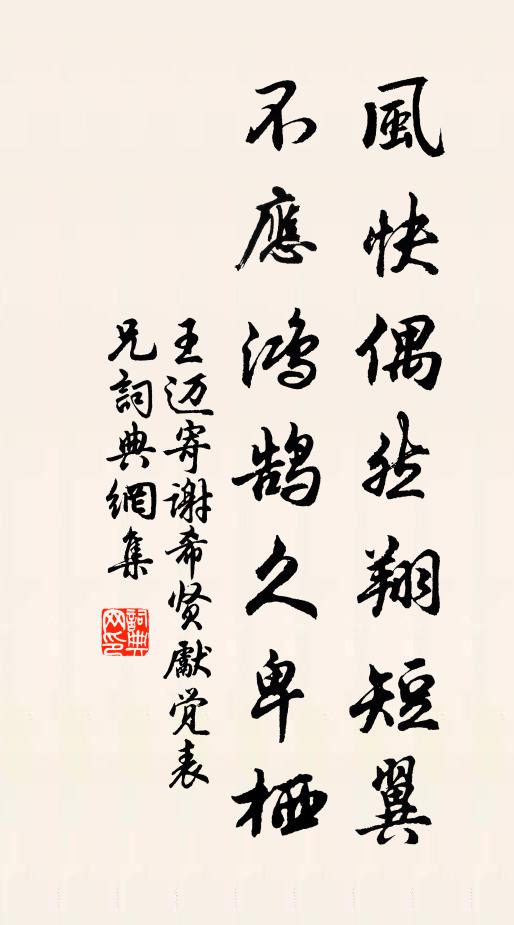 風快偶然翔短翼
不應鴻鵠久卑栖
王迈寄谢希贤獻觉表
兄詞典網集
詞典網印